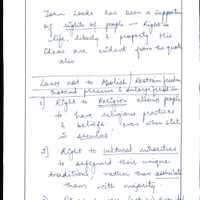 John Locke has been a supporter
of rights of people – Right to
life, liberty & property. His
ideas are evident from the quote
also.
Laws not to Abolish / Restrain freedom
Instead preserve & enlarge freedom
1) Right to Religion allows people
to have religious practices
& beliefs even when state
is secular.
2) Right to cultural minorities
to safeguard their unique
traditions rather than assimilate
them with majority.